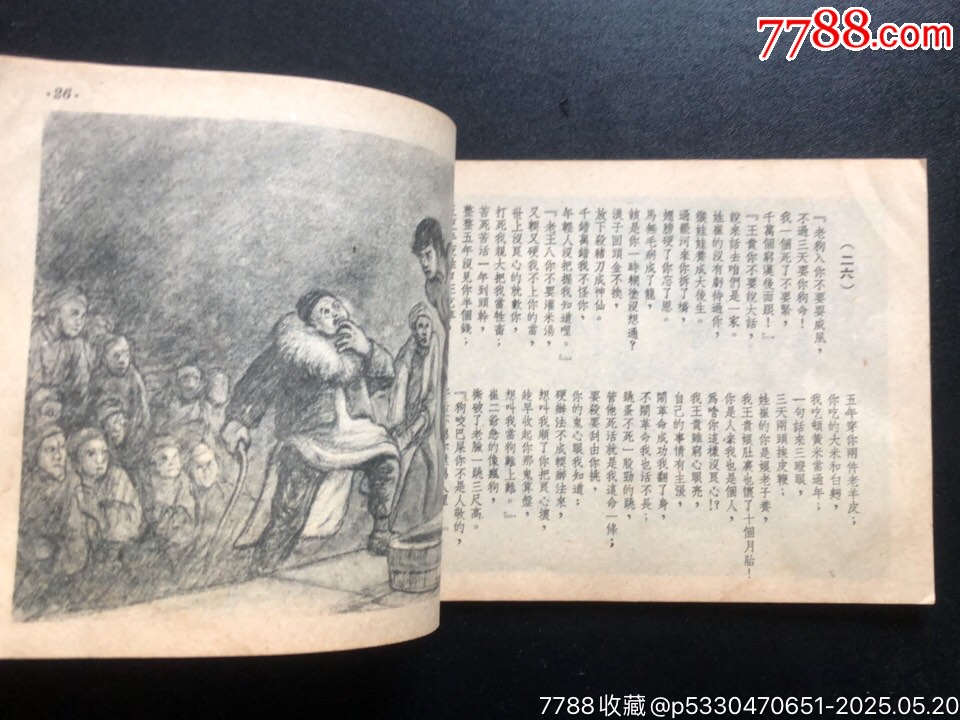 7788.com
·26·
(二六)
『老狗入你不要威風,
不過三天要你狗命!
我一個死了不要緊,
千萬個窮漢後面跟!』
『王貴你不要說大話,
說來話去咱們是一家。
姓崔的沒有虧待過你,
猴娃娃養成大後生。
過罷河來你拆了橋,
翅膀硬了你忘了恩。
馬無毛病成了龍,
該是你一時糊塗沒想通?
浪子回頭金不換,
放下殺豬刀成神仙。
千錯萬錯我不怪你,
年輕人沒把握我知道哩。』
『老王八你不要灌米湯,
又輭又硬我不上你的當,
世上沒艮心的就數你,
打死我親大把我當牲畜;
苦死苦活一年到頭幹,
整整五年沒見你半個錢,
五年穿你兩件老羊皮;
你吃的大米和白麵,
我吃頓黃米當過年;
一句話來三瞪眼,
三天兩頭挨皮鞭;
姓崔的你是娘老子養,
我王貴娘肚裏也懷了十個月胎!
你是人毫我也是個人,
爲啥你這樣沒艮心!?
我王貴雖窮心眼亮,
自己的事情有主張,
鬧革命成功我翻了身,
不鬧革命我也活不長;
跳蚤不死一股勁的跳,
管他死活就是我這命一條;
要殺要刮由你挑,
你的鬼心眼我知道;
硬辦法不成輭辦法來,
想叫我順了你把艮心壞,
趁早收起你那鬼算盤,
想叫我當狗難上難。』
崔二爺急的像瘋狗,
撕破了老臉一跳三尺高。
『狗咬巴屎你不是人敬的,
7788收藏@p5330470651-2025.05.20